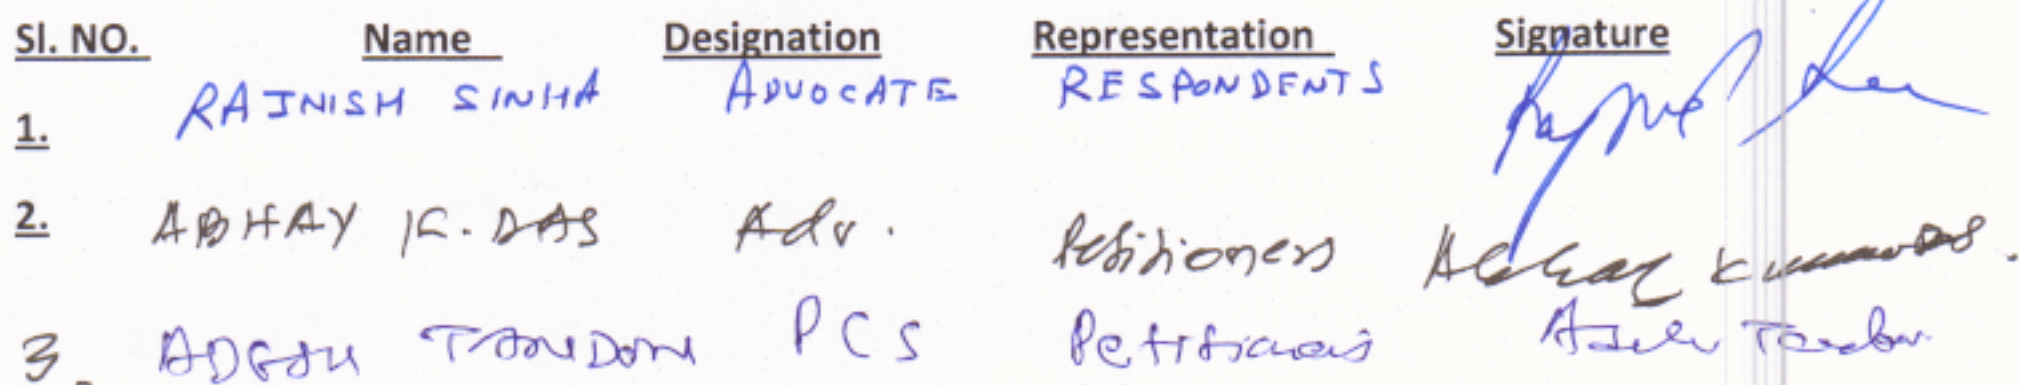 Sl. NO. Name Designation Representation Signature
1. RAJNISH SINHA ADVOCATE RESPONDENTS
2. ABHAY K. DAS Adv. Petitioners Abhay Kumar Das.
3. TANDON PCS Petitioners